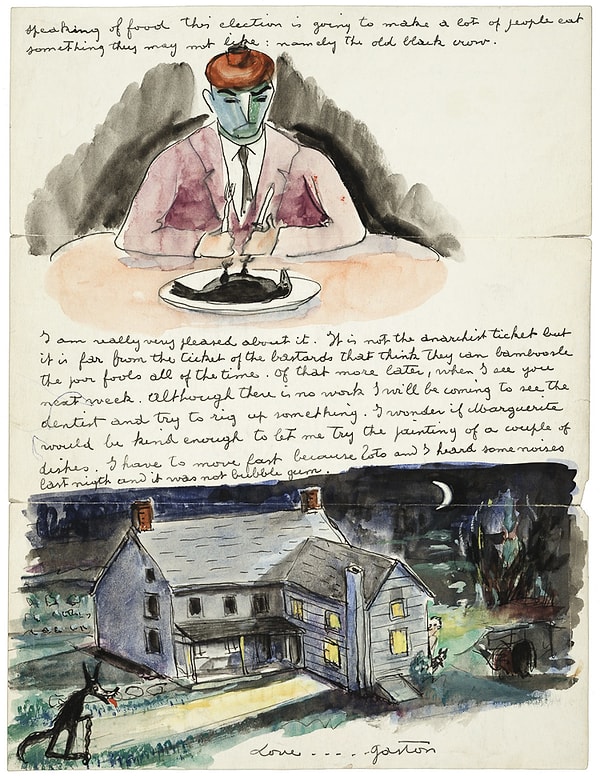 Speaking of food this election is going to make a lot of people eat
something they may not like: namely the old black crow.
I am really very pleased about it. It is not the anarchist ticket but
it is far from the ticket of the bastards that think they can bamboosle
the poor fools all of the time. Of that more later, when I see you
next week. Although there is no work I will be coming to see the
dentist and try to rig up something. I wonder if Marguerite
would be kind enough to let me try the painting of a couple of
dishes. I have to move fast because Zoto and I heard some noises
last nigth and it was not bubble gum.
Love ---- Gaston